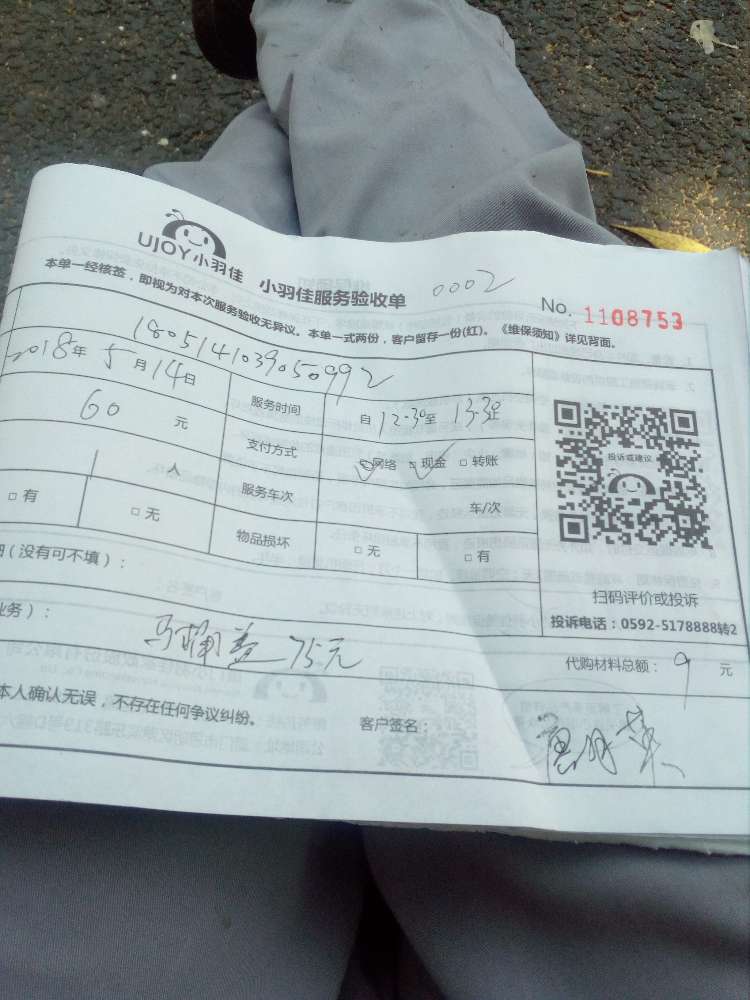 UJOY小羽佳 小羽佳服务验收单 0002
No. 1108753
本单一经核签，即视为对本次服务验收无异议。本单一式两份，客户留存一份(红)。《维保须知》详见背面。
1805141039050992
2018年5月14日 服务时间 自12:30至13:30止
60元 支付方式 □网络 □现金 □转账
1人 服务车次 车/次
□有 □无 物品损坏 □无 □有
投诉或建议
扫码评价或投诉
投诉电话：0592-5178888转2
(没有可不填)：
业务)：
马桶盖75元
代购材料总额：9元
本人确认无误，不存在任何争议纠纷。 客户签名：